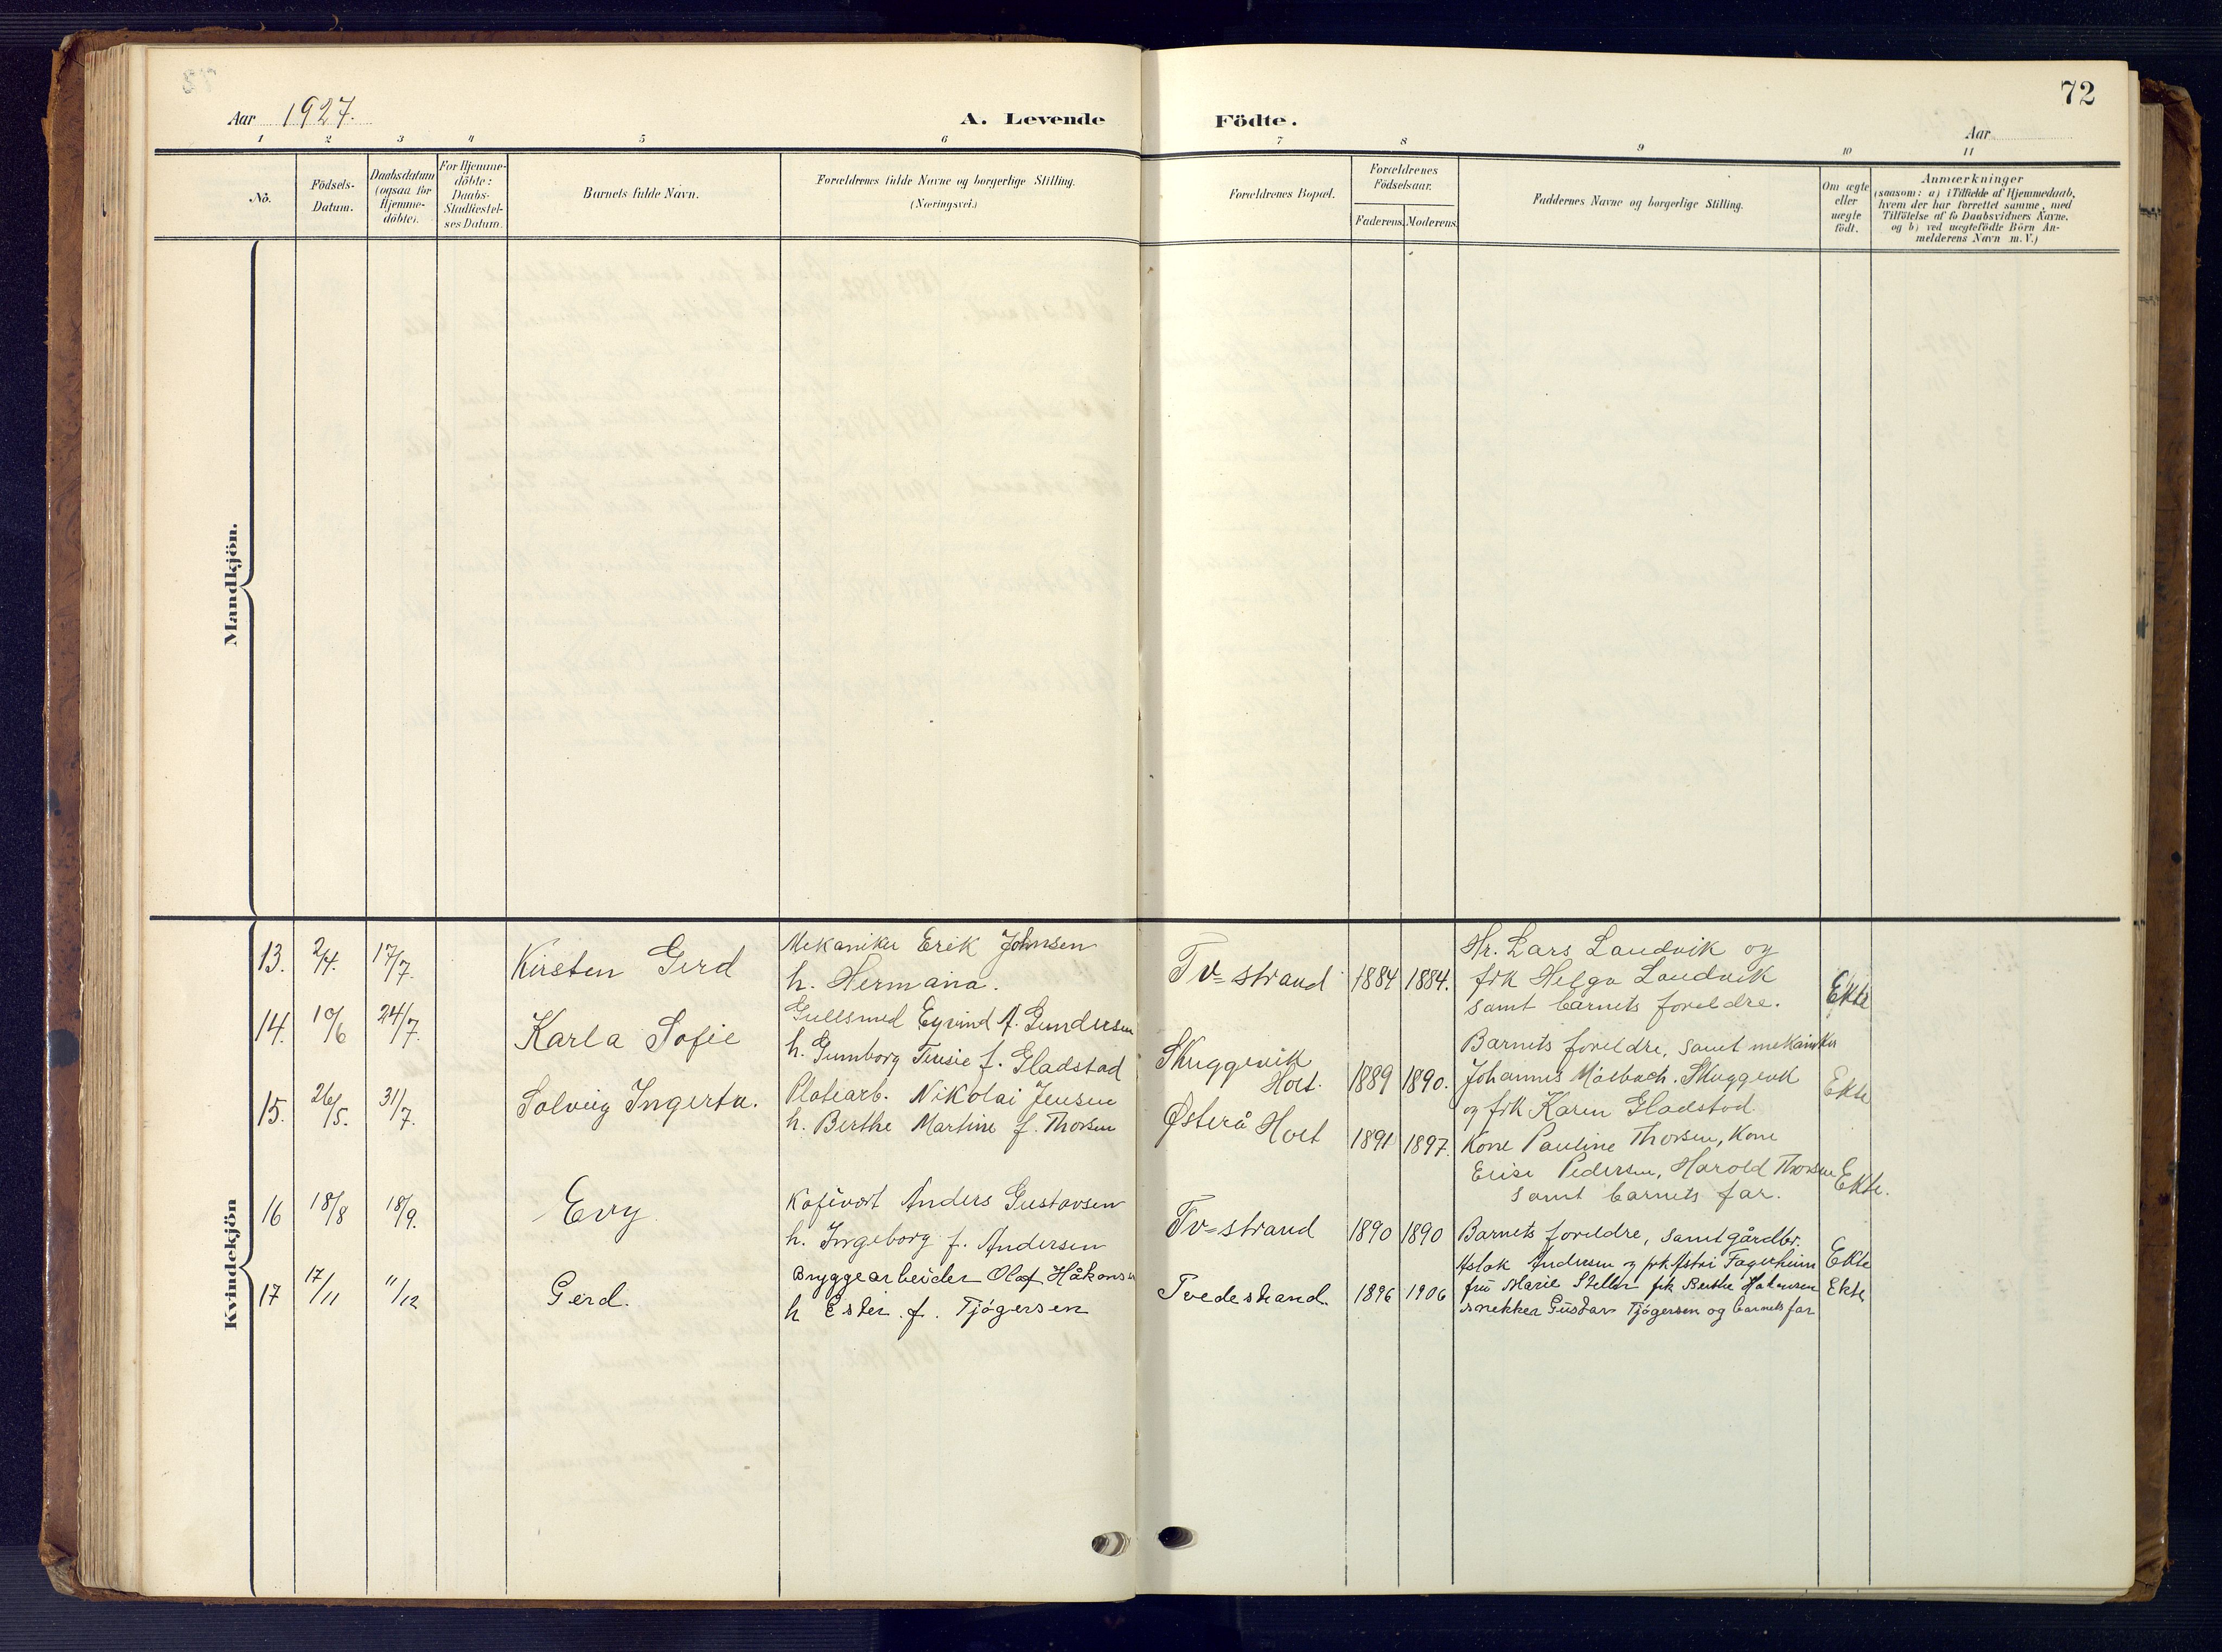 72
Aar 1927.
A. Levende Födte.
Aar
1 2 3 4 5 6 7 8 9 10 11
No.
Födsels-
Datum.
Daabsdatum
(ogsaa for
Hjemme-
döbte).
For Hjemme-
döbte:
Daabs-
Stadfæstel-
ses Datum.
Barnets fulde Navn.
Forældrenes fulde Navne og borgerlige Stilling.
(Næringsvei.)
Forældrenes Bopæl.
Forældrenes
Födselsaar.
Faderens. Moderens.
Faddernes Navne og borgerlige Stilling.
Om ægte
eller
uægte
födt.
Anmærkninger
(saasom: a) i Tilfælde af Hjemmedaab,
hvem der har forrettet samme, med
Tilföielse af to Daabsvidners Navne.
og b) ved uægtefödte Börn An-
melderens Navn m. V.)
Mandkjön.
Kvindekjön
13. 2/4. 17/7. Kirsten Gerd
Mekaniker Erik Johnsen
h. Hermana.
Tv=strand 1884 1884.
Hr. Lars Landvik og
frk Helga Landvik
samt barnets foreldre.
Ekte
14. 10/6 24/7. Karla Sofie
Gullsmed Eyvind A. Gundersen
h. Gumborg Tensie f. Gladstad
Skuggevik
Holt. 1889 1890.
Barnets foreldre, samt mekaniker
Johannes Mosbach. Skuggevik
og frk Karen Gladstad
Ekte
15. 26/5. 31/7. Solveig Ingerta.
Platearb. Nikolai Jensen
h. Berthe Martine f. Thorsen
Østerå Holt 1891 1897.
Kone Pauline Thorsen, Kone
Elise Pedersen, Harold Thorsen
samt barnets far.
Ekte.
16 18/8 18/9. Evy
Kafévert Anders Gustavsen
h. Ingeborg f. Andersen
Tv=strand 1890 1890
Barnets foreldre, samt gårdbr.
Aslak Andersen og frk Astri Fagerheim
Ekte
17 17/11 11/12 Gerd.
Bryggearbeider Olaf Håkonsen
h Ester f. Tjøgersen
Tvedestrand. 1896 1906
fru Marie Steller frk Berthe Håkonsen
snekker Gustav Tjøgersen og barnets far
Ekte